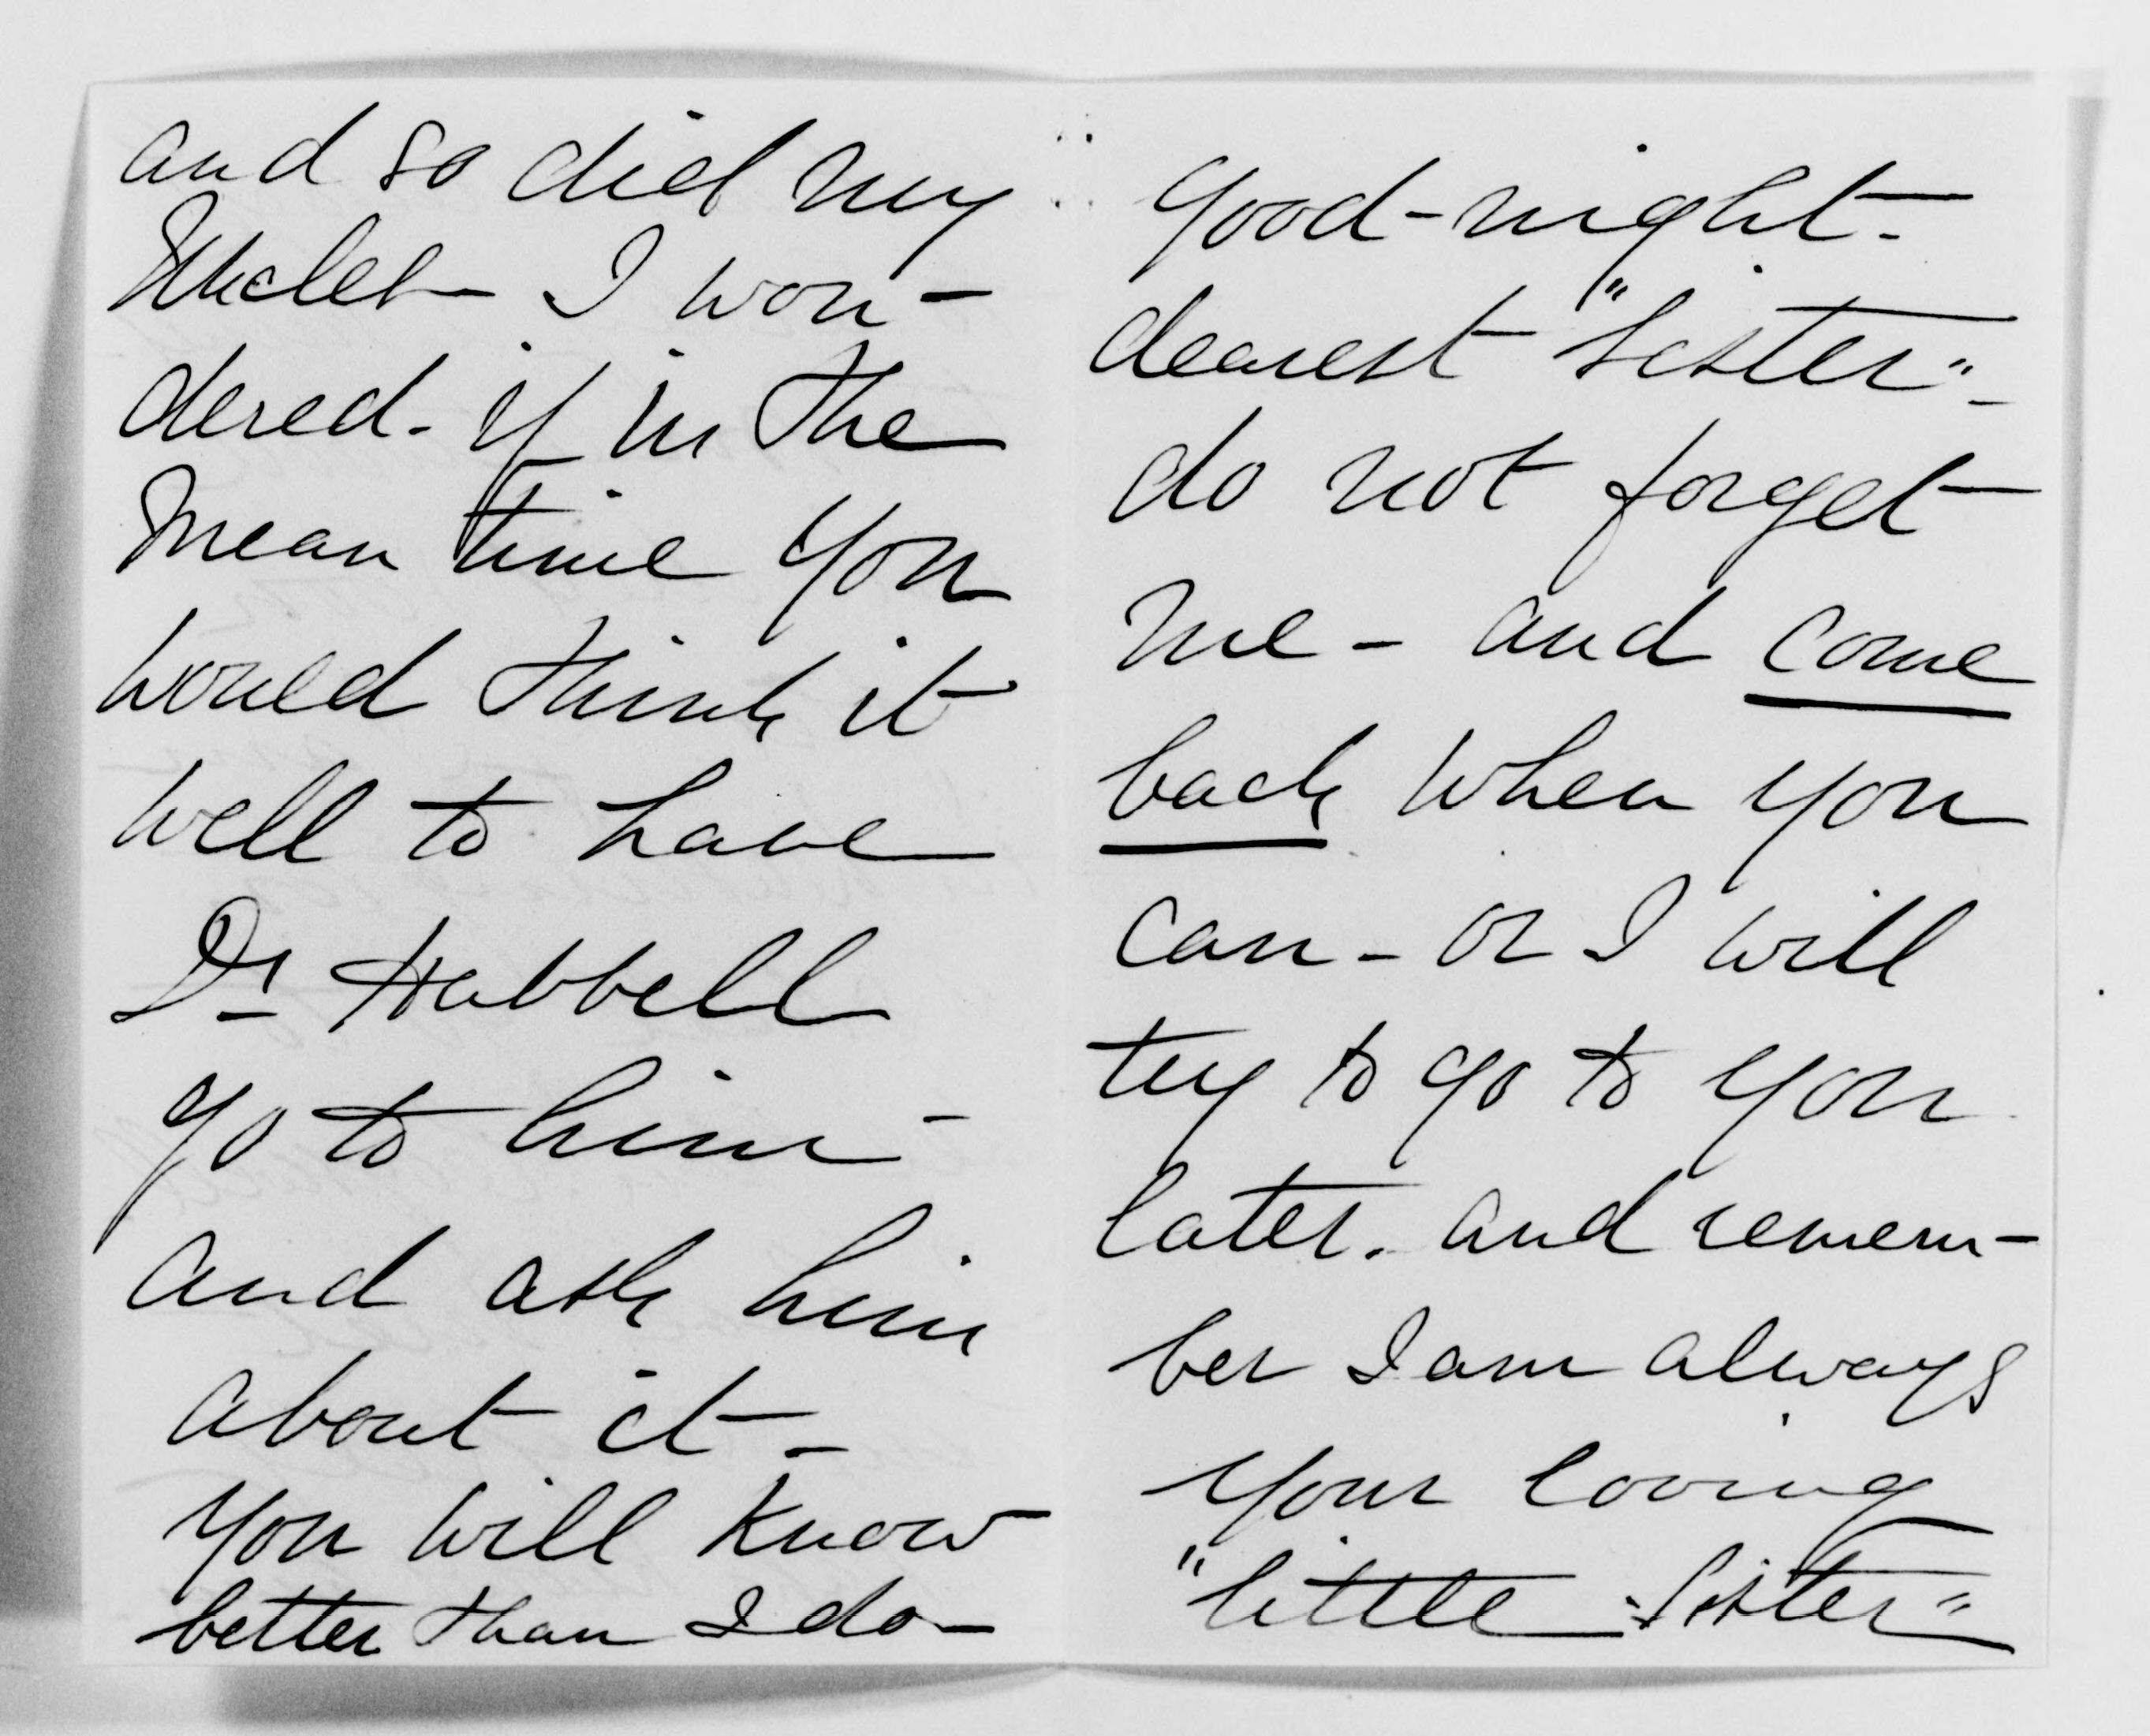 and so did my
Uncles - I won-
dered - if in the
mean time you
would think it
well to have
Dr Hubbell
go to him -
and ask him
about it -
You will know
better than I do -
good-night -
dearest "Sister" -
do not forget
me - and come
back when you
can - or I will
try to go to you
later. and remem-
ber I am always
your loving
"little Sister"